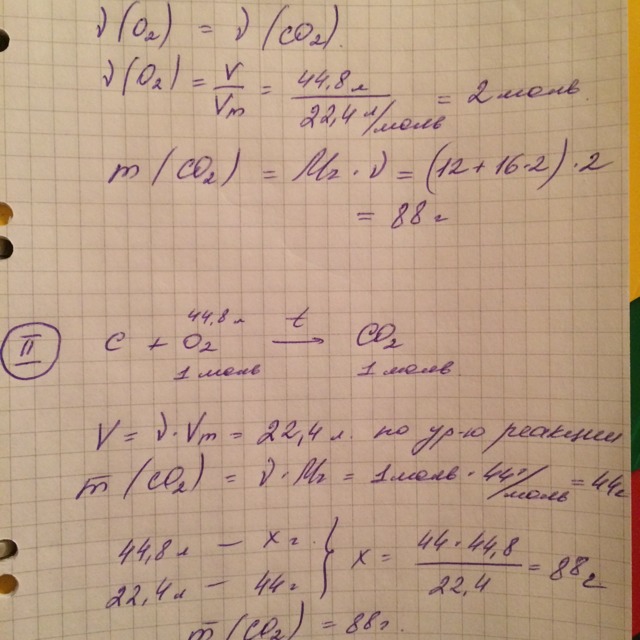 ν(O₂) = ν(CO₂).
ν(O₂) = V/Vm = 44,8 л / 22,4 л/моль = 2 моль.
m(CO₂) = Mr · ν = (12 + 16·2) · 2
= 88 г
44,8 л
II C + O₂ →(t) CO₂
1 моль 1 моль
V = ν · Vm = 22,4 л. по ур-ю реакции
m(CO₂) = ν · Mr = 1 моль · 44 г/моль = 44г
44,8 л — x г.
22,4 л — 44 г } x = 44 · 44,8 / 22,4 = 88 г
m(CO₂) = 88г.